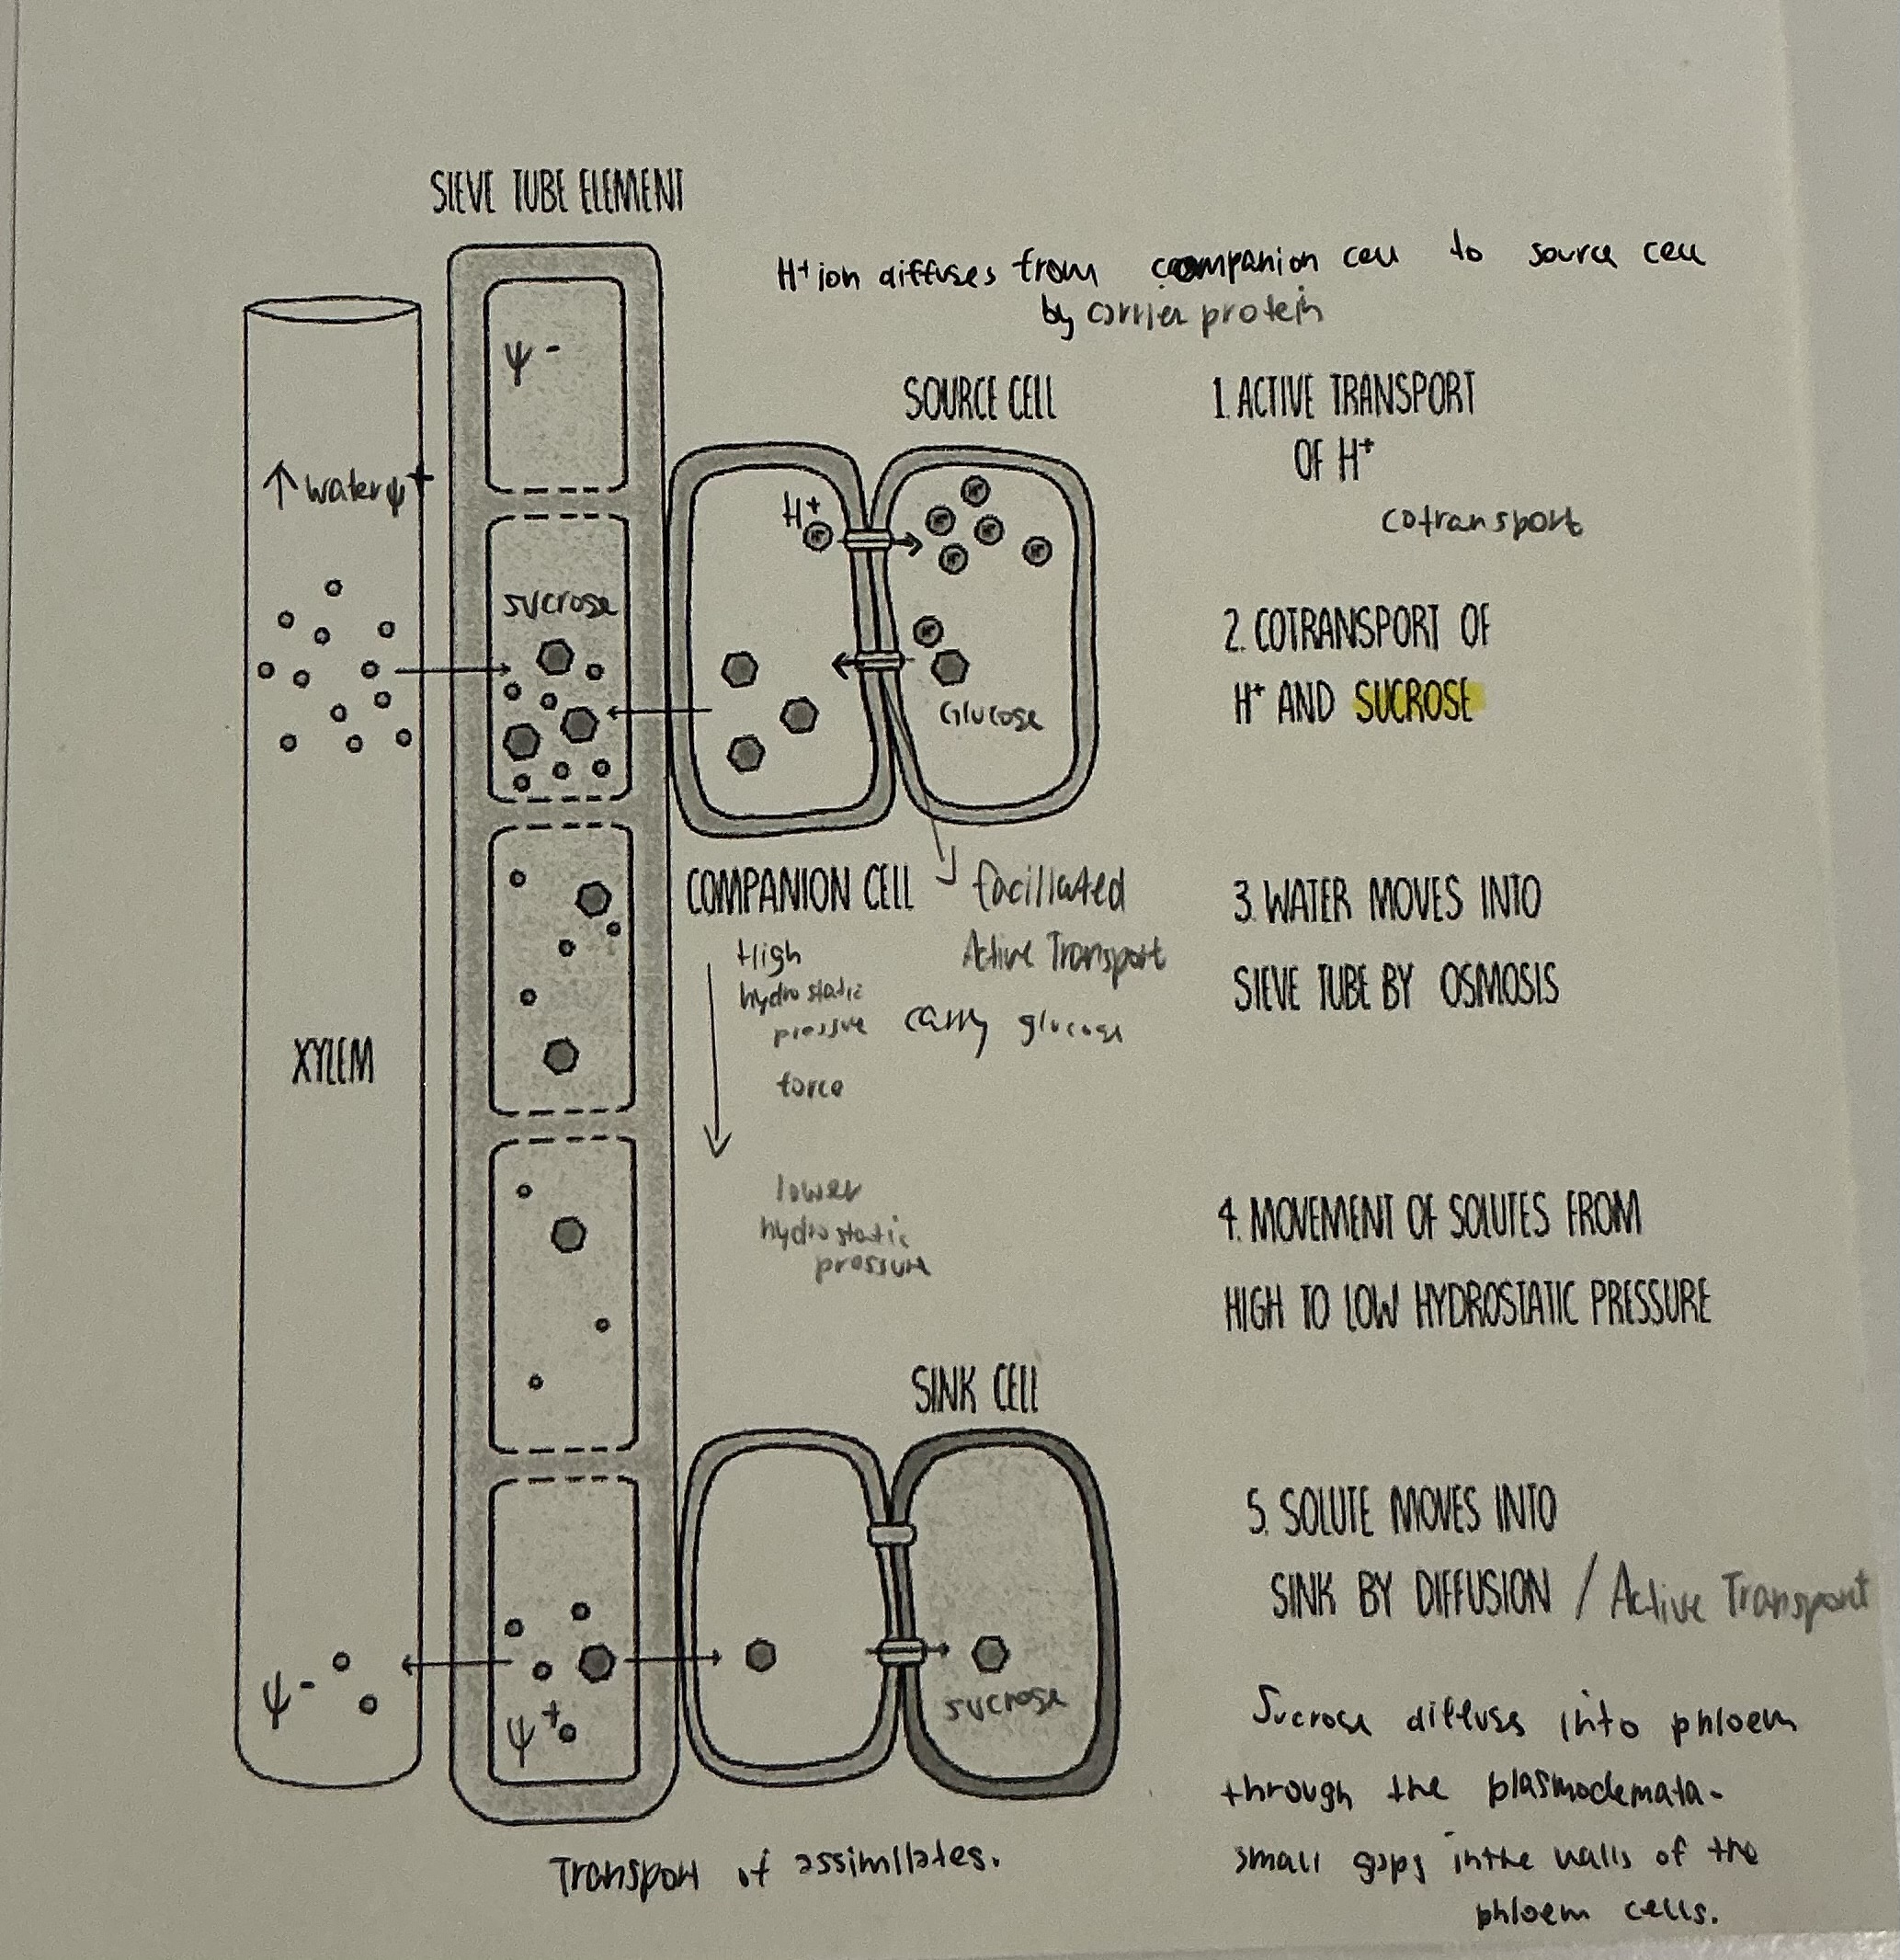 SIEVE TUBE ELEMENT
H+ ion diffuses from companion cell to source cell
by carrier protein
SOURCE CELL
1. ACTIVE TRANSPORT
OF H+
cotransport
ψ -
↑ water ψ +
H+
H+
H+
H+
H+
H+
H+
sucrose
H+
Glucose
2. COTRANSPORT OF
H+ AND SUCROSE
COMPANION CELL
facillated
Active Transport
carry glucose
High
hydrostatic
pressure
force
3. WATER MOVES INTO
SIEVE TUBE BY OSMOSIS
XYLEM
lower
hydrostatic
pressure
4. MOVEMENT OF SOLUTES FROM
HIGH TO LOW HYDROSTATIC PRESSURE
SINK CELL
5. SOLUTE MOVES INTO
SINK BY DIFFUSION / Active Transport
ψ -
ψ +
sucrose
Sucrose diffuses into phloem
through the plasmodemata-
small gaps in the walls of the
phloem cells.
Transport of assimilates.